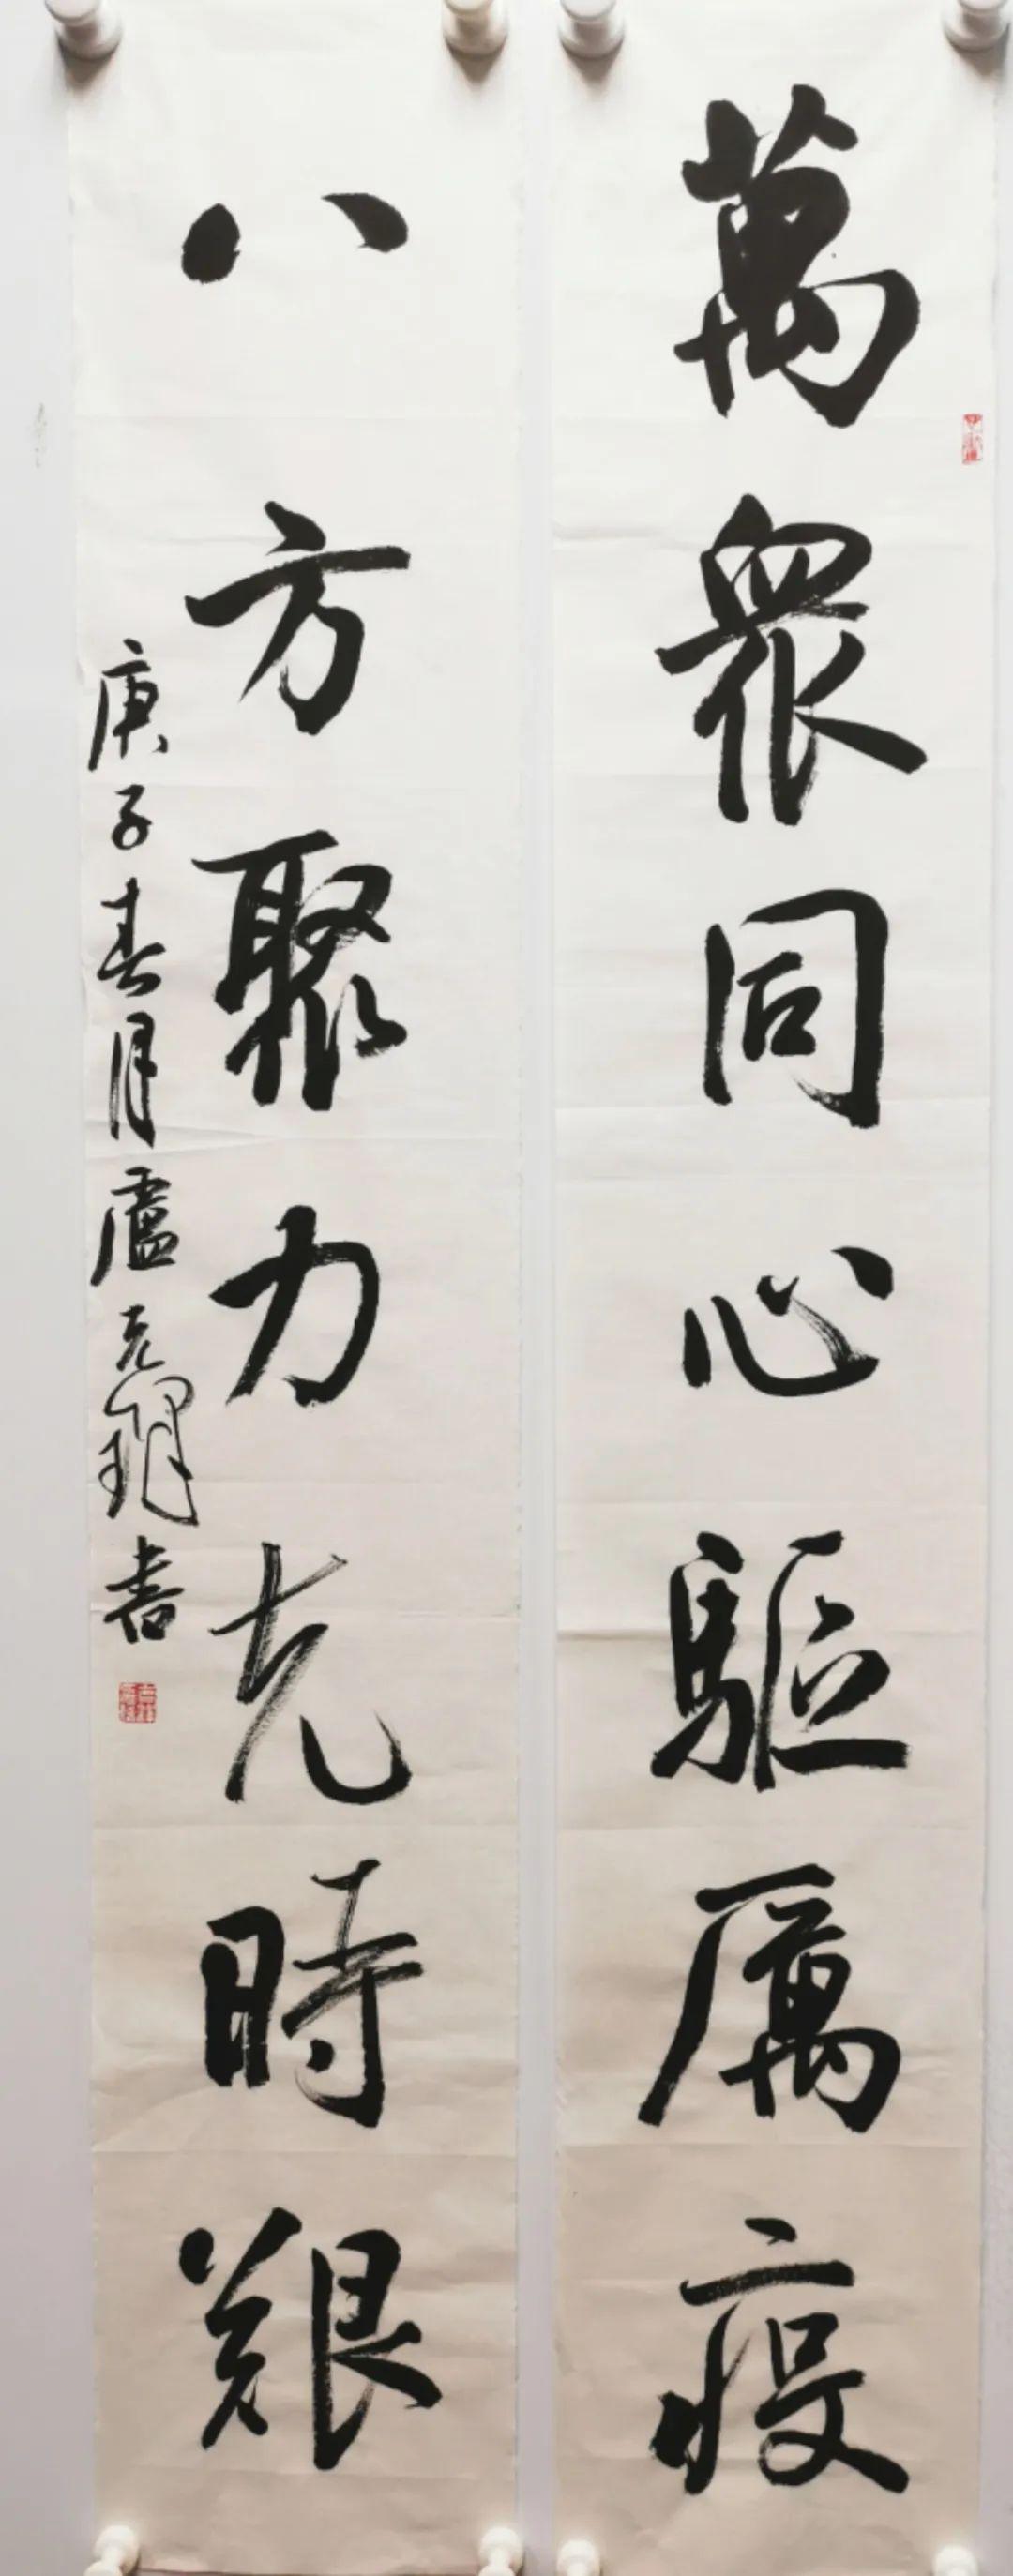 萬眾同心驅厲疫
八方聚力克時艱
庚子春月盧克翔書